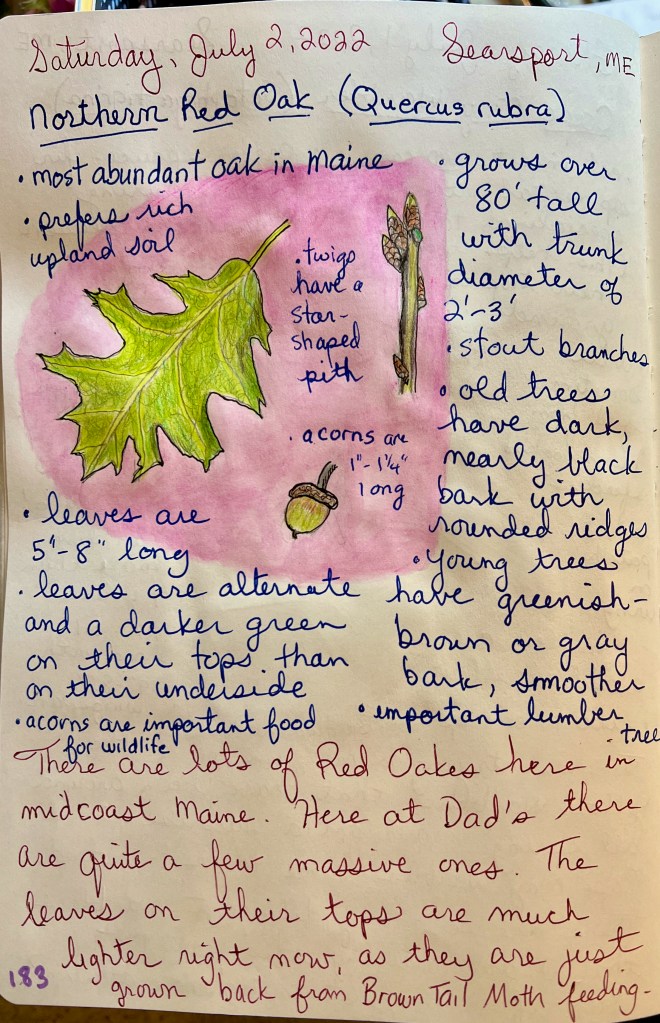 Saturday, July 2, 2022 Searsport, ME
Northern Red Oak (Quercus rubra)
• most abundant oak in Maine
• prefers rich
upland soil
• twigs
have a
star-
shaped
pith
• acorns are
1"-1¼"
long
• leaves are
5"-8" long
• leaves are alternate
and a darker green
on their tops than
on their underside
• acorns are important food
for wildlife
• grows over
80' tall
with trunk
diameter of
2'-3'
• stout branches
• old trees
have dark,
nearly black
bark with
rounded ridges
• young trees
have greenish-
brown or gray
bark, smoother
• important lumber
tree
There are lots of Red Oakes here in
midcoast Maine. Here at Dad's there
are quite a few massive ones. The
leaves on their tops are much
lighter right now, as they are just
grown back from Brown Tail Moth feeding-
183